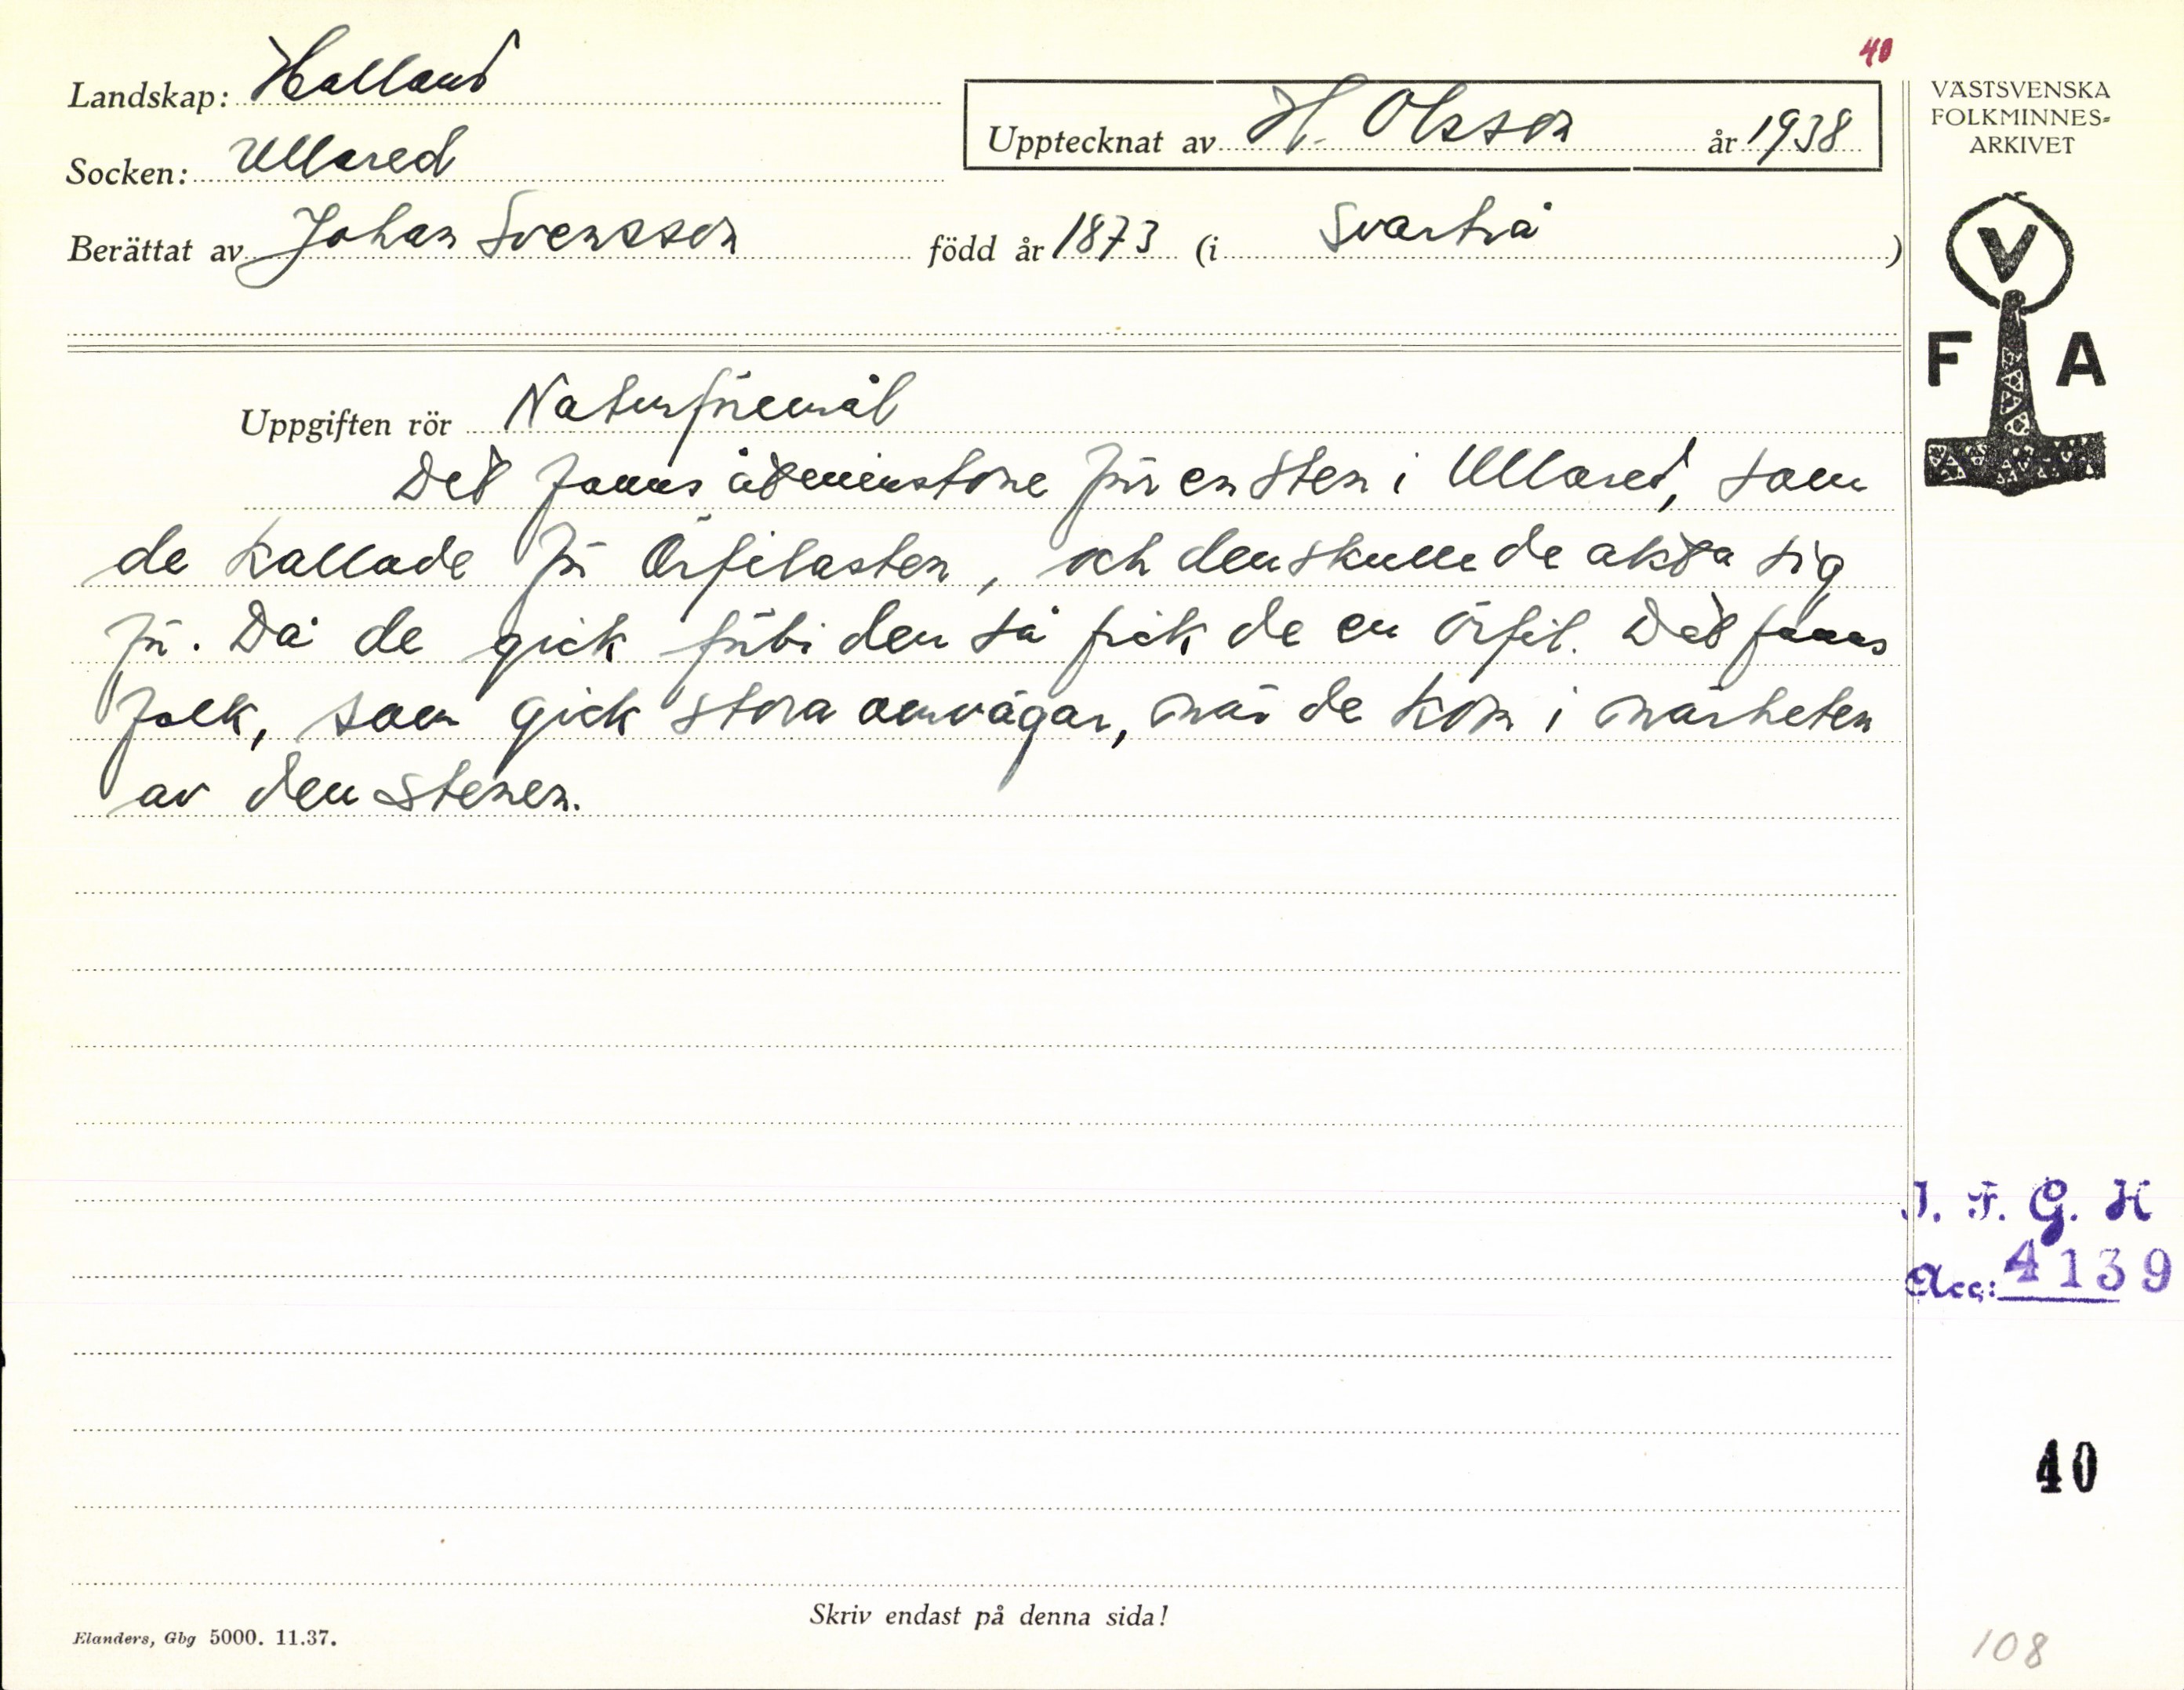 40
Landskap: Halland
Upptecknat av H. Olsson år 1938
VÄSTSVENSKA
FOLKMINNES=
ARKIVET
Socken: Ullared
Berättat av Johan Svensson född år 1873 (i Svartrå )
V
F A
Uppgiften rör Naturföremål
Det fanns åtminstone för en sten i Ullared, som
de kallade för Örfilasten, och den skulle de akta sig
för. Då de gick förbi den så fick de en örfil. Det fanns
folk, som gick stora omvägar, när de kom i närheten
av den stenen.
I. F. G. H
Acc: 4139
40
Skriv endast på denna sida!
Elanders, Gbg 5000. 11.37.
108